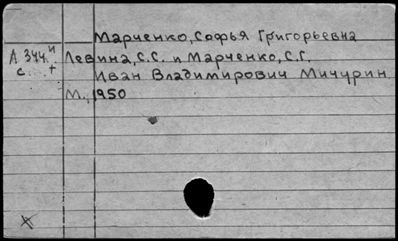 Марченко, Софья Григорьевна
А 344.и Левина, С.С. и Марченко, С.Г.
с. + Иван Владимирович Мичурин
М., 1950
х